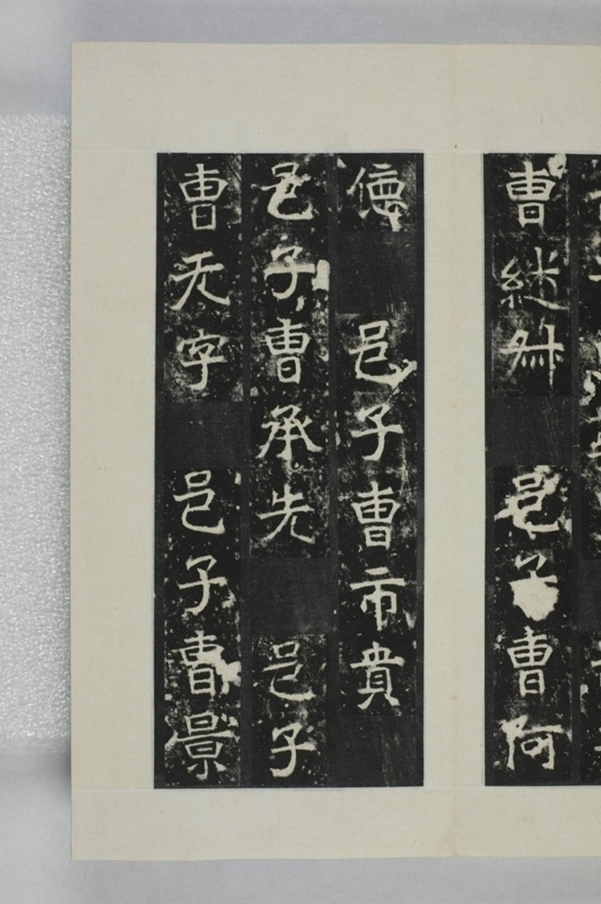 曹継 邑子曹阿
德 邑子曹市貴
邑子曹承先 邑子
曹天字 邑子曹景